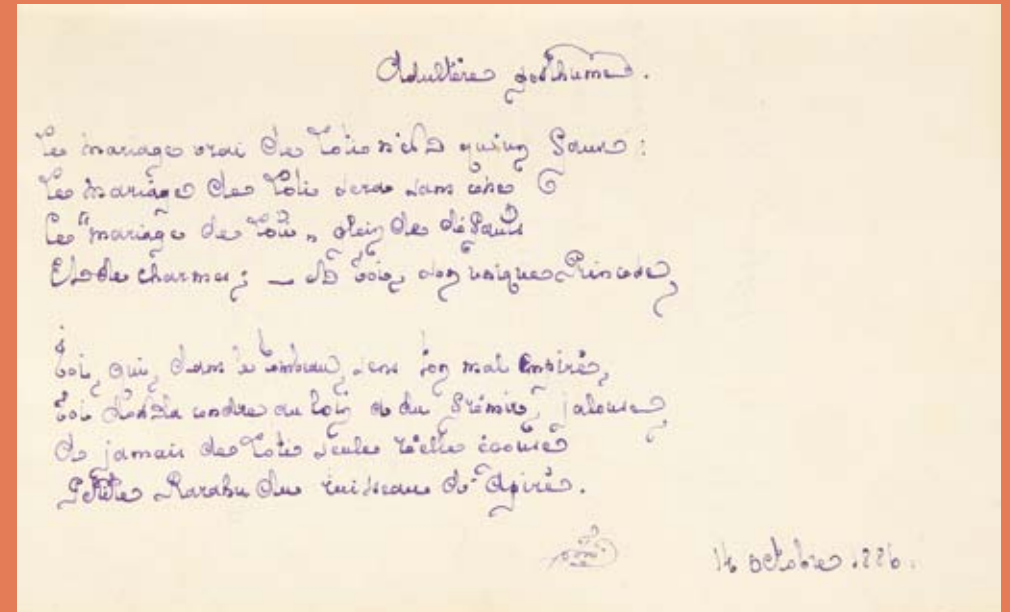 Adultère posthume.
Le mariage vrai de Loti n'est qu'un faux :
Le mariage de Loti sera sans cesse
Le "mariage de Loti", plein de défauts
Et de charmes ; — et toi, son unique Princesse,
Toi, qui, dans le tombeau, sens ton mal empiré,
Toi dont la cendre au loin a dû frémir, jalouse,
A jamais de Loti seule réelle épouse
Petite Rarahu du ruisseau d'Apiré.
octobre